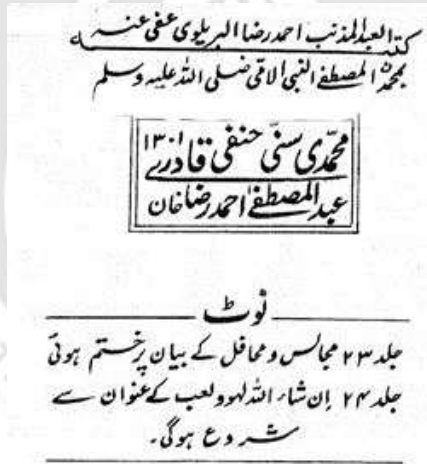 کتبہ العبد المذنب احمد رضا البریلوی عفی عنہ
بمحمدن المصطفٰے النبی الامی صلی اللہ علیہ وسلم
محمدی سنی حنفی قادری ۱۳۰۱
عبد المصطفٰے احمد رضا خان
نوٹ
جلد ۲۳ مجالس ومحافل کے بیان پر ختم ہوئی
جلد ۲۴ إن شاء اللہ لہو ولعب کے عنوان سے
شروع ہوگی۔